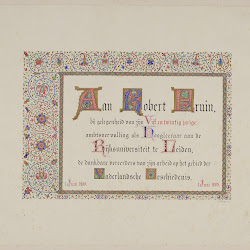 Aan Robert Fruin,
bij gelegenheid van zijn Vijf en twintig jarige
ambtsvervulling als Hoogleeraar aan de
Rijksuniversiteit te Leiden,
de dankbare vereerders van zijn arbeid op het gebied der
Vaderlandsche Geschiedenis.
1 Juni 1885.